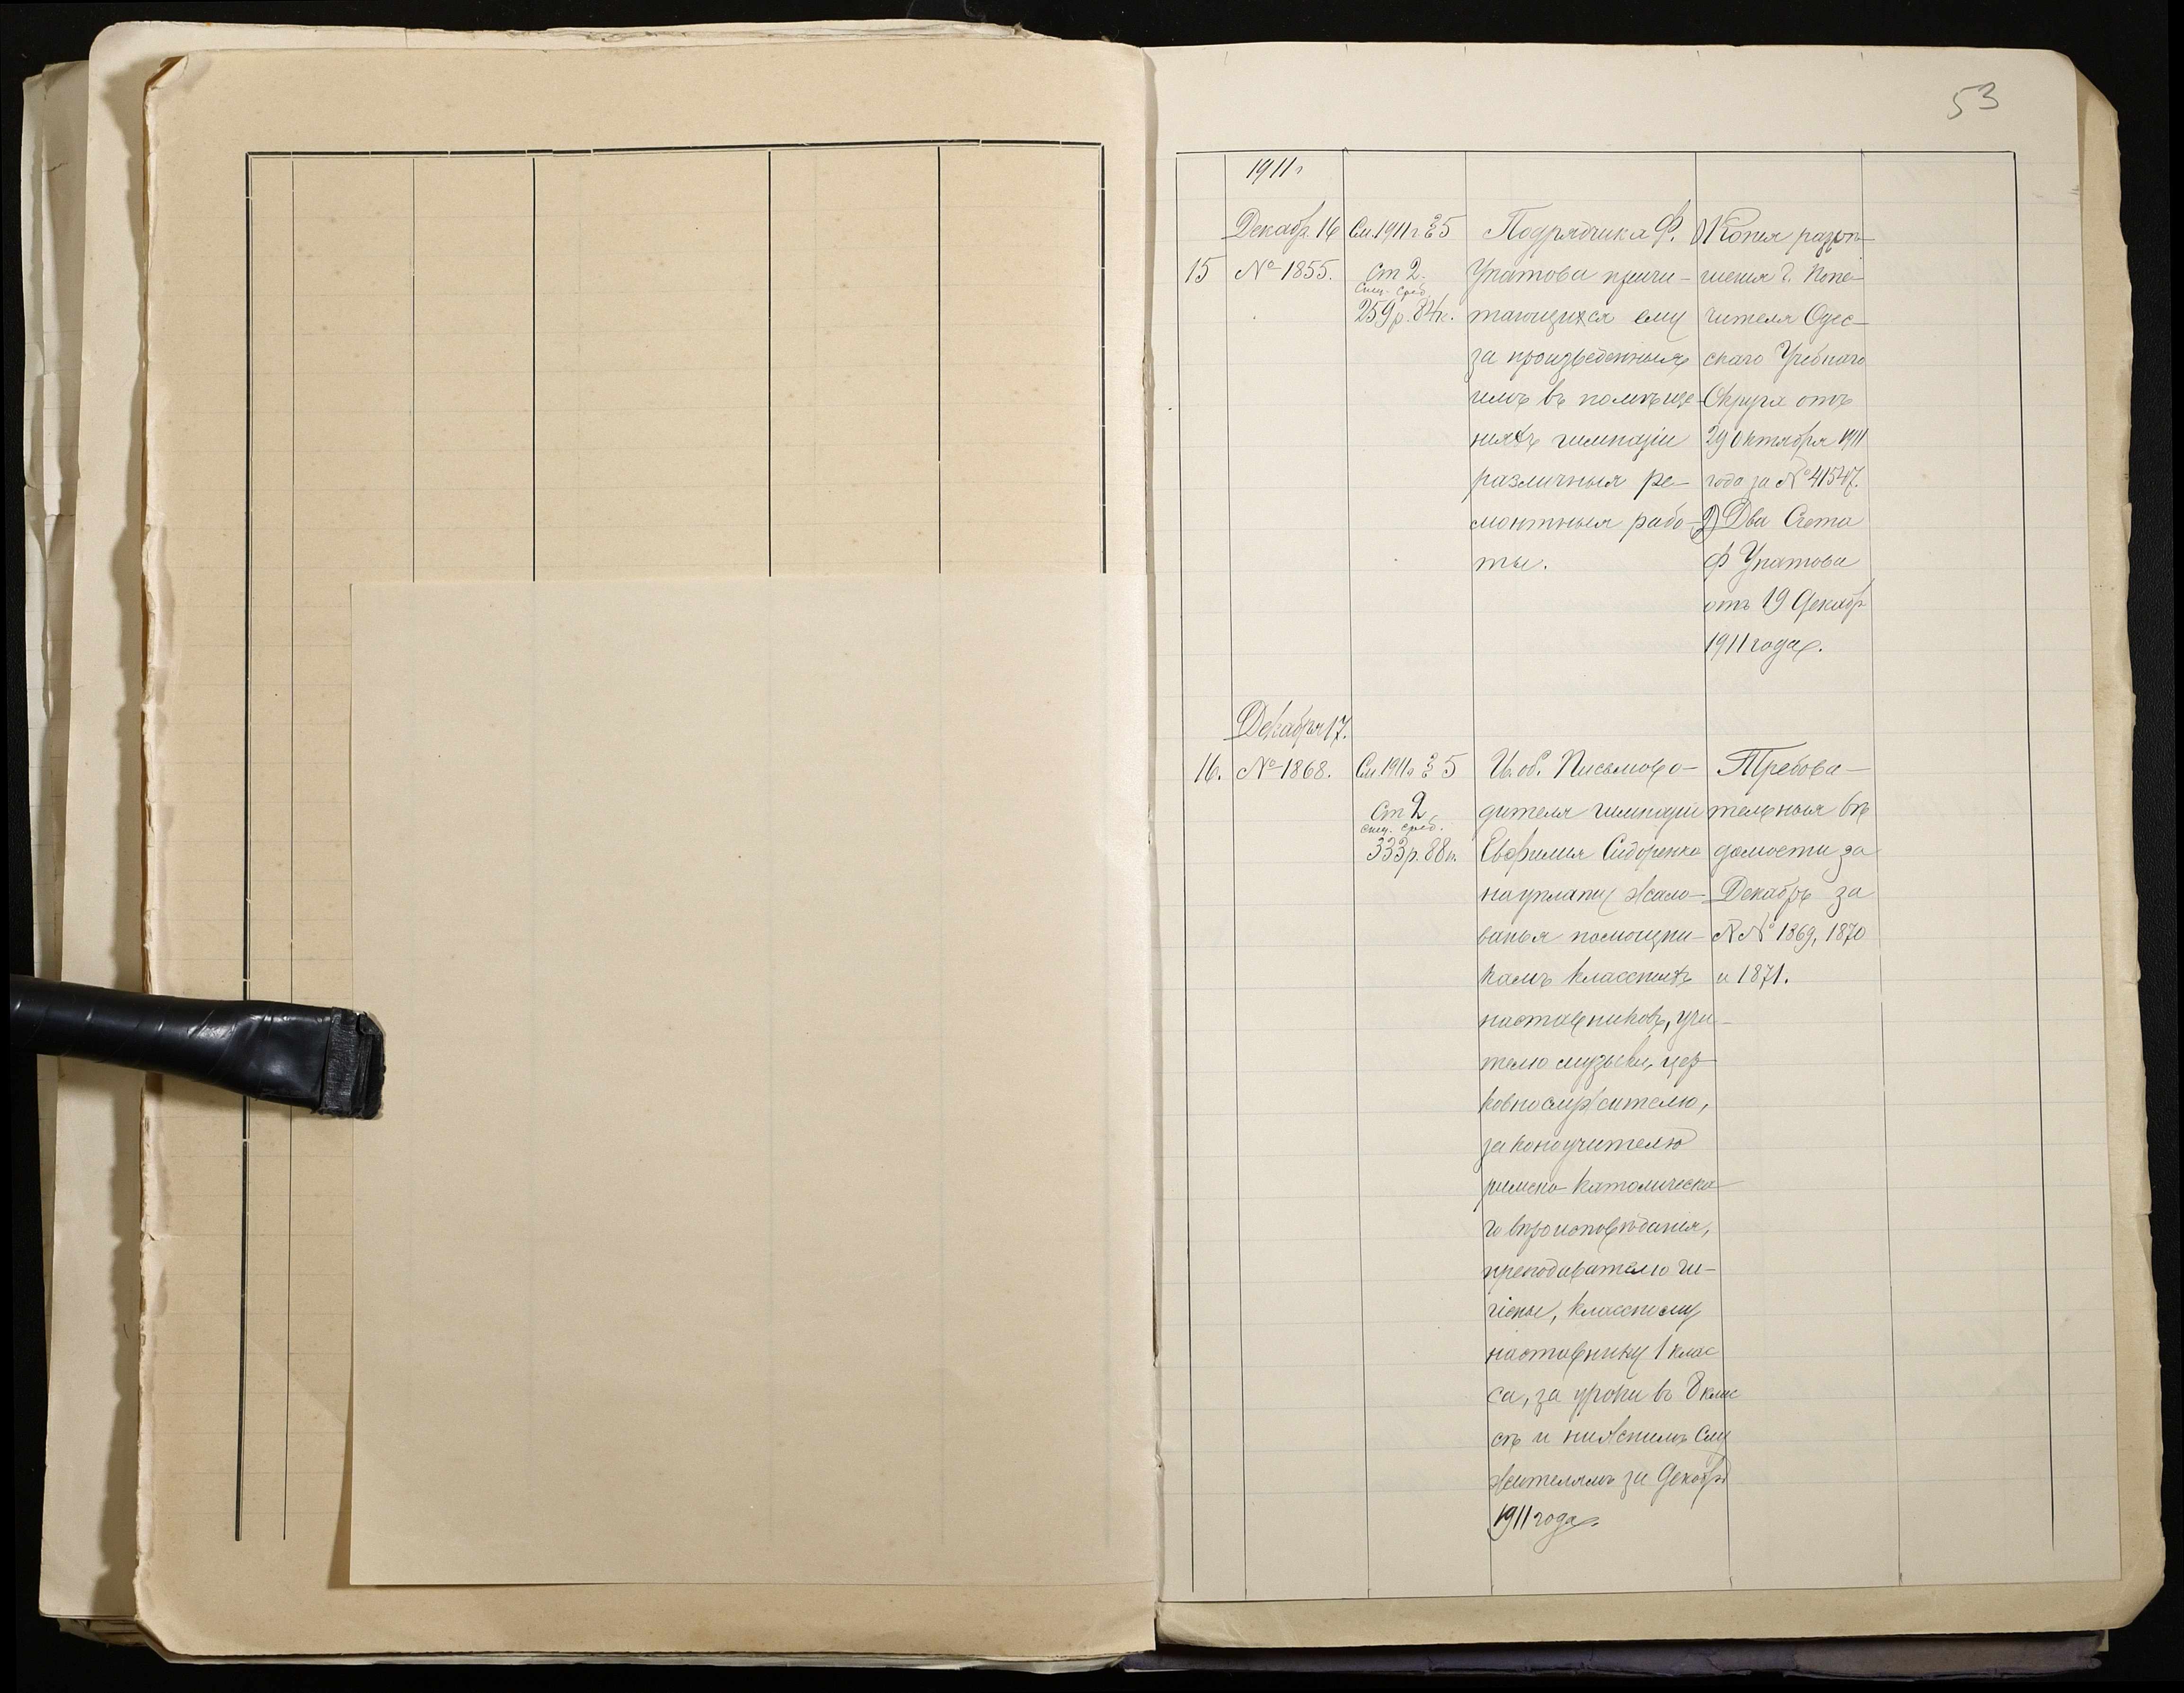 53
1911 г
Декабр. 16
15 № 1855.
См. 1911 г. § 5
ст 2.
Спец. сред.
259 р. 84 к.
Подрядчика Ф.
Упатова причи-
тающихся ему
за произведенныя
имъ въ помѣще-
нияхъ гимназіи
различныя ре-
монтныя рабо-
ты.
1) Копия разрѣ-
шения г. Попе-
чителя Одес-
скаго Учебнаго
Округа отъ
29 Октября 1911
года за № 41547.
2) Два Счета
Ф Упатова
отъ 19 Декабр
1911 года.
Декабря 17.
16. № 1868.
См 1911 г § 5
Ст 2
спец. сред.
333 р. 88 к.
И. об. Письмово-
дителя гимназіи
Евфимия Сидоренко
на уплату жало-
ванья помощни-
камъ классныхъ
наставниковъ, учи-
телю музыки, цер-
ковнослужителю,
законоучителю
римско-католическа-
го вѣроисповѣдания,
преподавателю ги-
гіены, классному
наставнику 1 клас
са, за уроки въ 8 клас
сѣ и нижнимъ слу
жителямъ за Декабрь
1911 года.
Требова-
тельныя вѣ
домости за
Декабрь за
№№ 1869, 1870
и 1871.